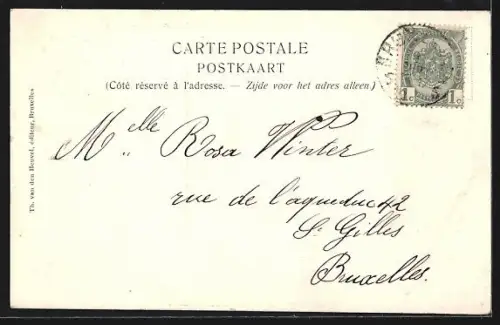 CARTE POSTALE
POSTKAART
(Côté réservé à l'adresse. — Zijde voor het adres alleen.)
Th. van den Heuvel, éditeur, Bruxelles
Melle Rosa Winter
rue de l'aqueduc 42
St Gilles
Bruxelles.
1c 1c